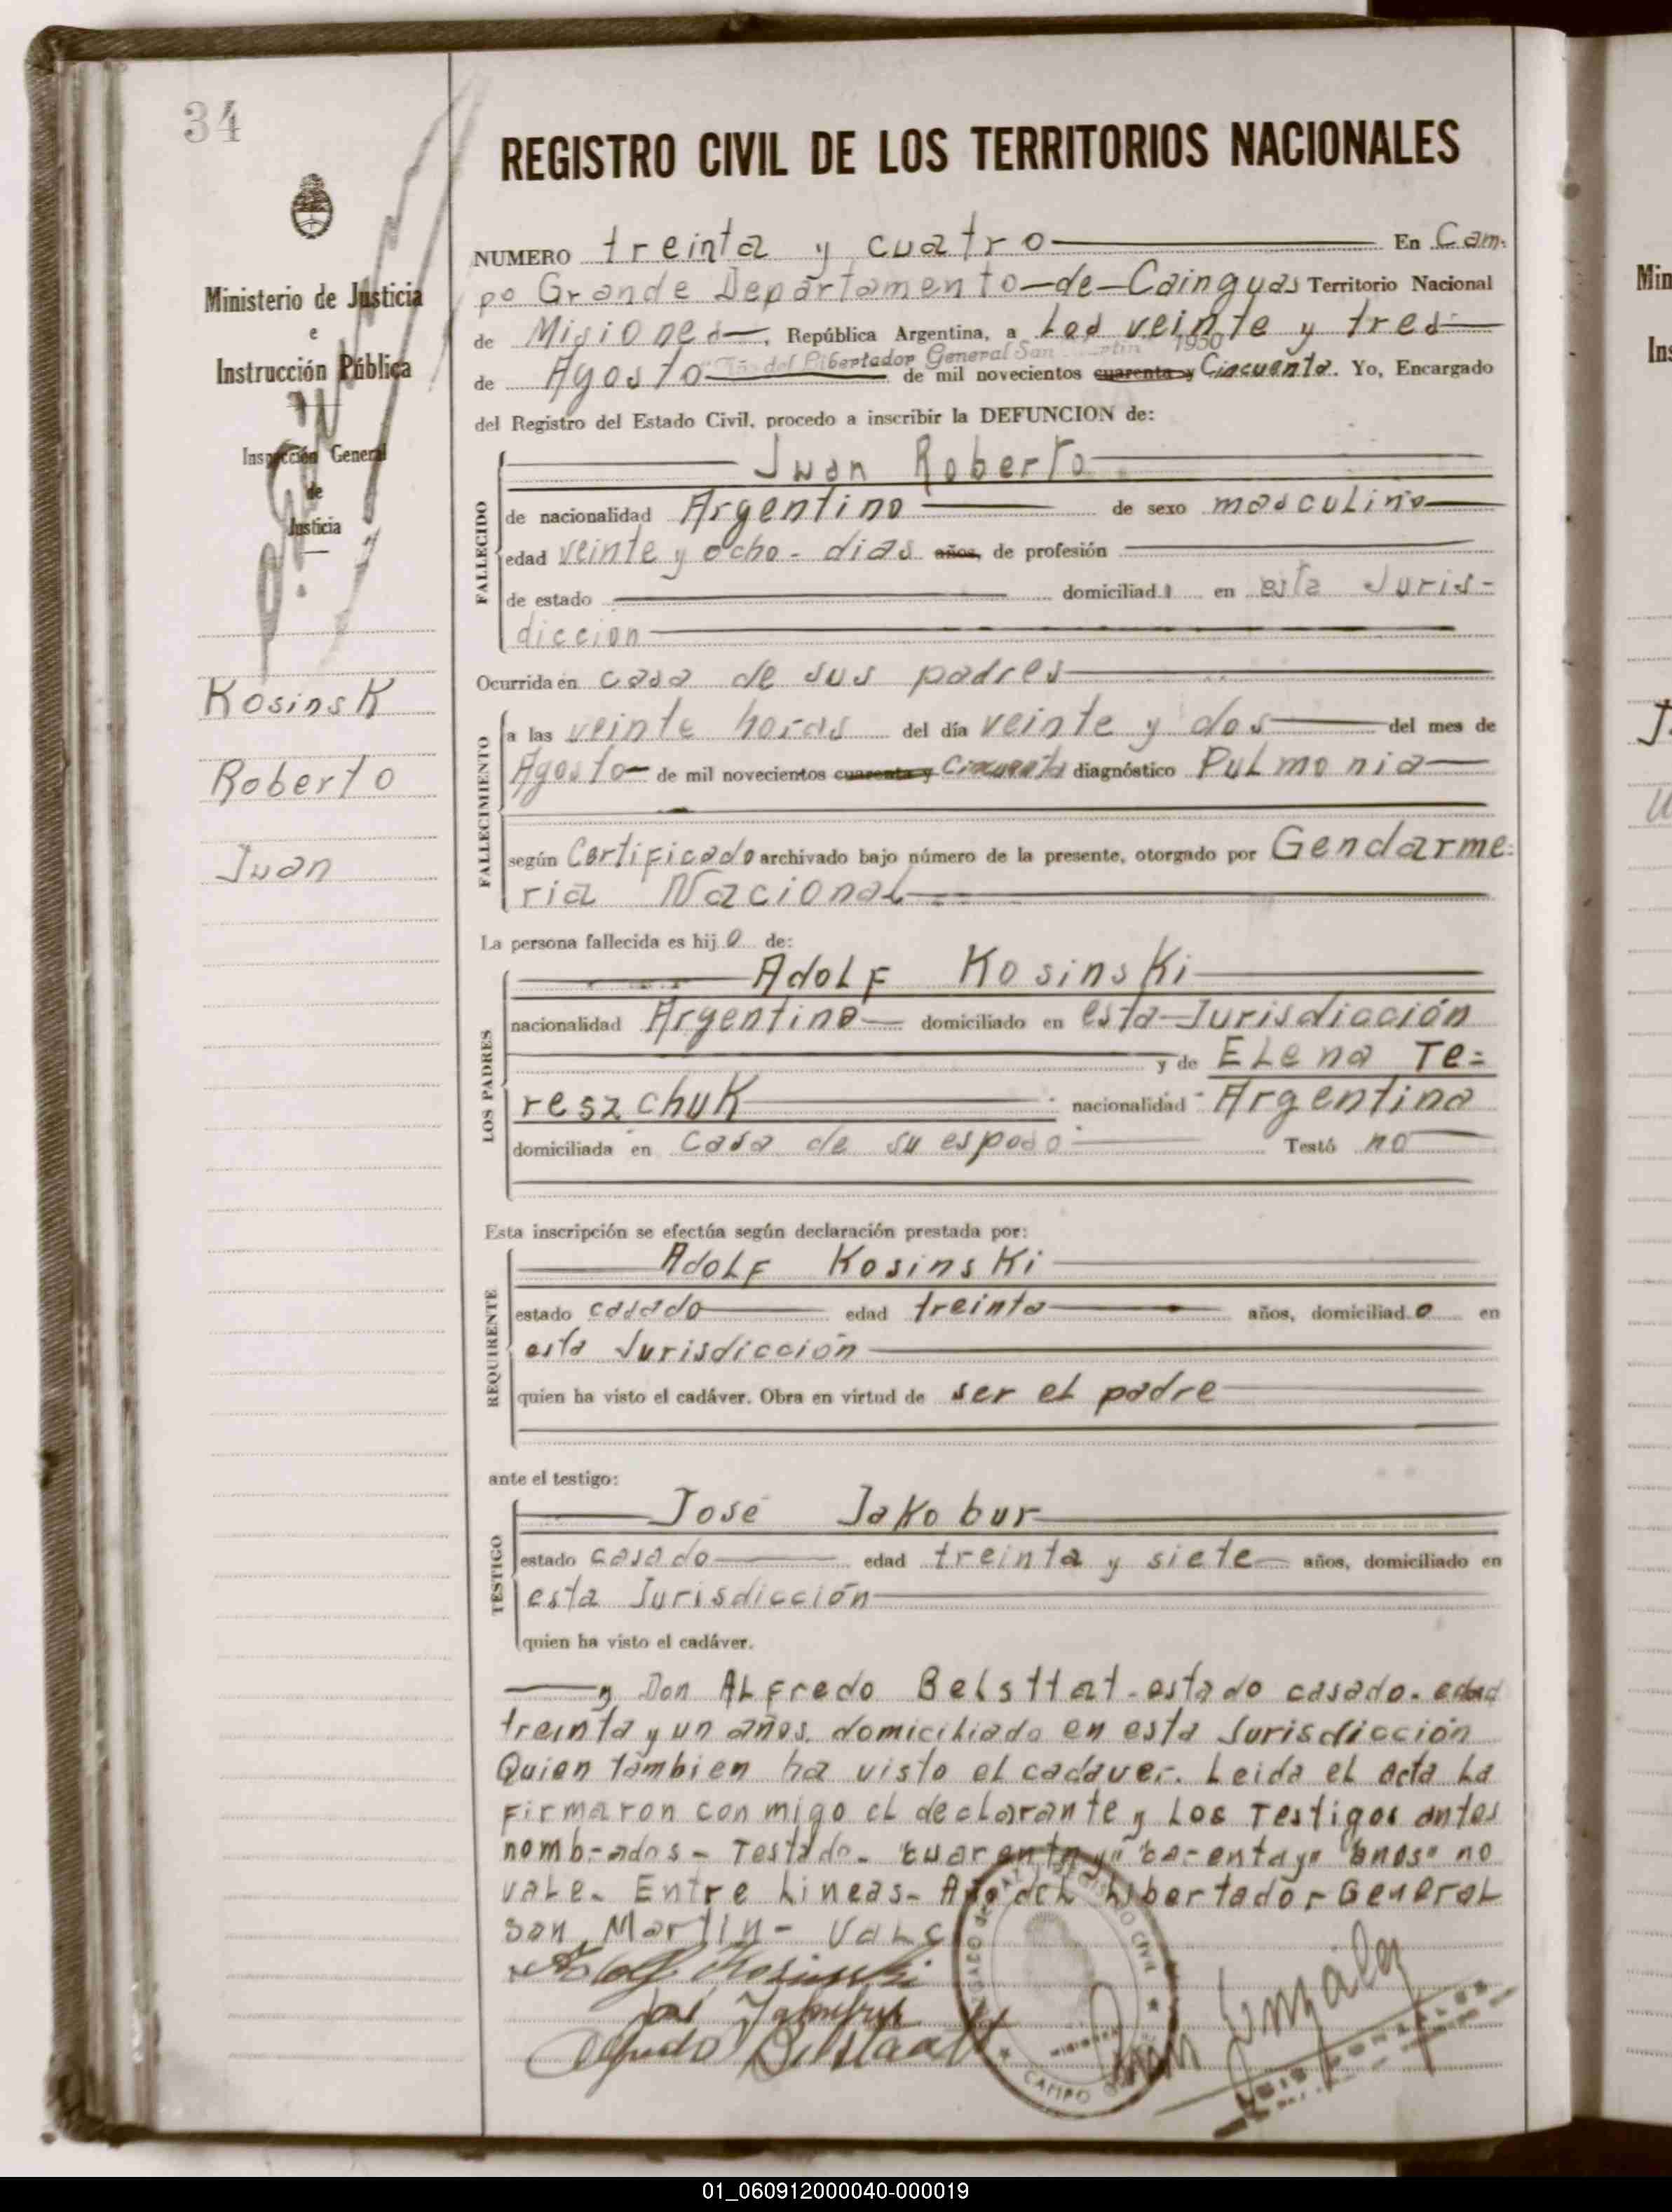 34
REGISTRO CIVIL DE LOS TERRITORIOS NACIONALES
Ministerio de Justicia
e
Instrucción Pública
Inspección General
de
Justicia
Kosinsk
Roberto
Juan
NUMERO treinta y cuatro En Cam-
po Grande Departamento de Cainguas Territorio Nacional
de Misiones, República Argentina, a Los veinte y tres
"Año del Libertador General San Martin" 1950
de Agosto de mil novecientos cuarenta y Cincuenta. Yo, Encargado
del Registro del Estado Civil, procedo a inscribir la DEFUNCION de:
FALLECIDO
Juan Roberto
de nacionalidad Argentino de sexo masculino
edad veinte y ocho - dias años, de profesión
de estado domiciliad en esta Juris-
diccion
Ocurrida en casa de sus padres
FALLECIMIENTO
a las veinte horas del día veinte y dos del mes de
Agosto de mil novecientos cuarenta y Cincuenta diagnóstico Pulmonia
según Certificado archivado bajo número de la presente, otorgado por Gendarme-
ria Nacional
La persona fallecida es hijo de:
LOS PADRES
Adolf Kosinski
nacionalidad Argentino domiciliado en esta Jurisdicción
y de Elena Te=
reszchuk nacionalidad Argentina
domiciliada en casa de su esposo Testó no
Esta inscripción se efectúa según declaración prestada por:
REQUIRENTE
Adolf Kosinski
estado casado edad treinta años, domiciliado en
esta Jurisdicción
quien ha visto el cadáver. Obra en virtud de ser el padre
ante el testigo:
TESTIGO
José Jakobur
estado casado edad treinta y siete años, domiciliado en
esta Jurisdicción
quien ha visto el cadáver.
y Don Alfredo Belsttat - estado casado. edad
treinta y un años. domiciliado en esta Jurisdicción
Quien tambien ha visto el cadaver. Leida el acta La
firmaron con migo el declarante y Los Testigos antes
nombrados - Testado - "cuarenta y" "cuarenta y" "años" no
vale. Entre Lineas - Año del Libertador General
San Martin - vale
Adolf Kosinski
José
Alfredo Belstaatt
REGISTRO CIVIL
CAMPO
Gonzalez
01_060912000040-000019